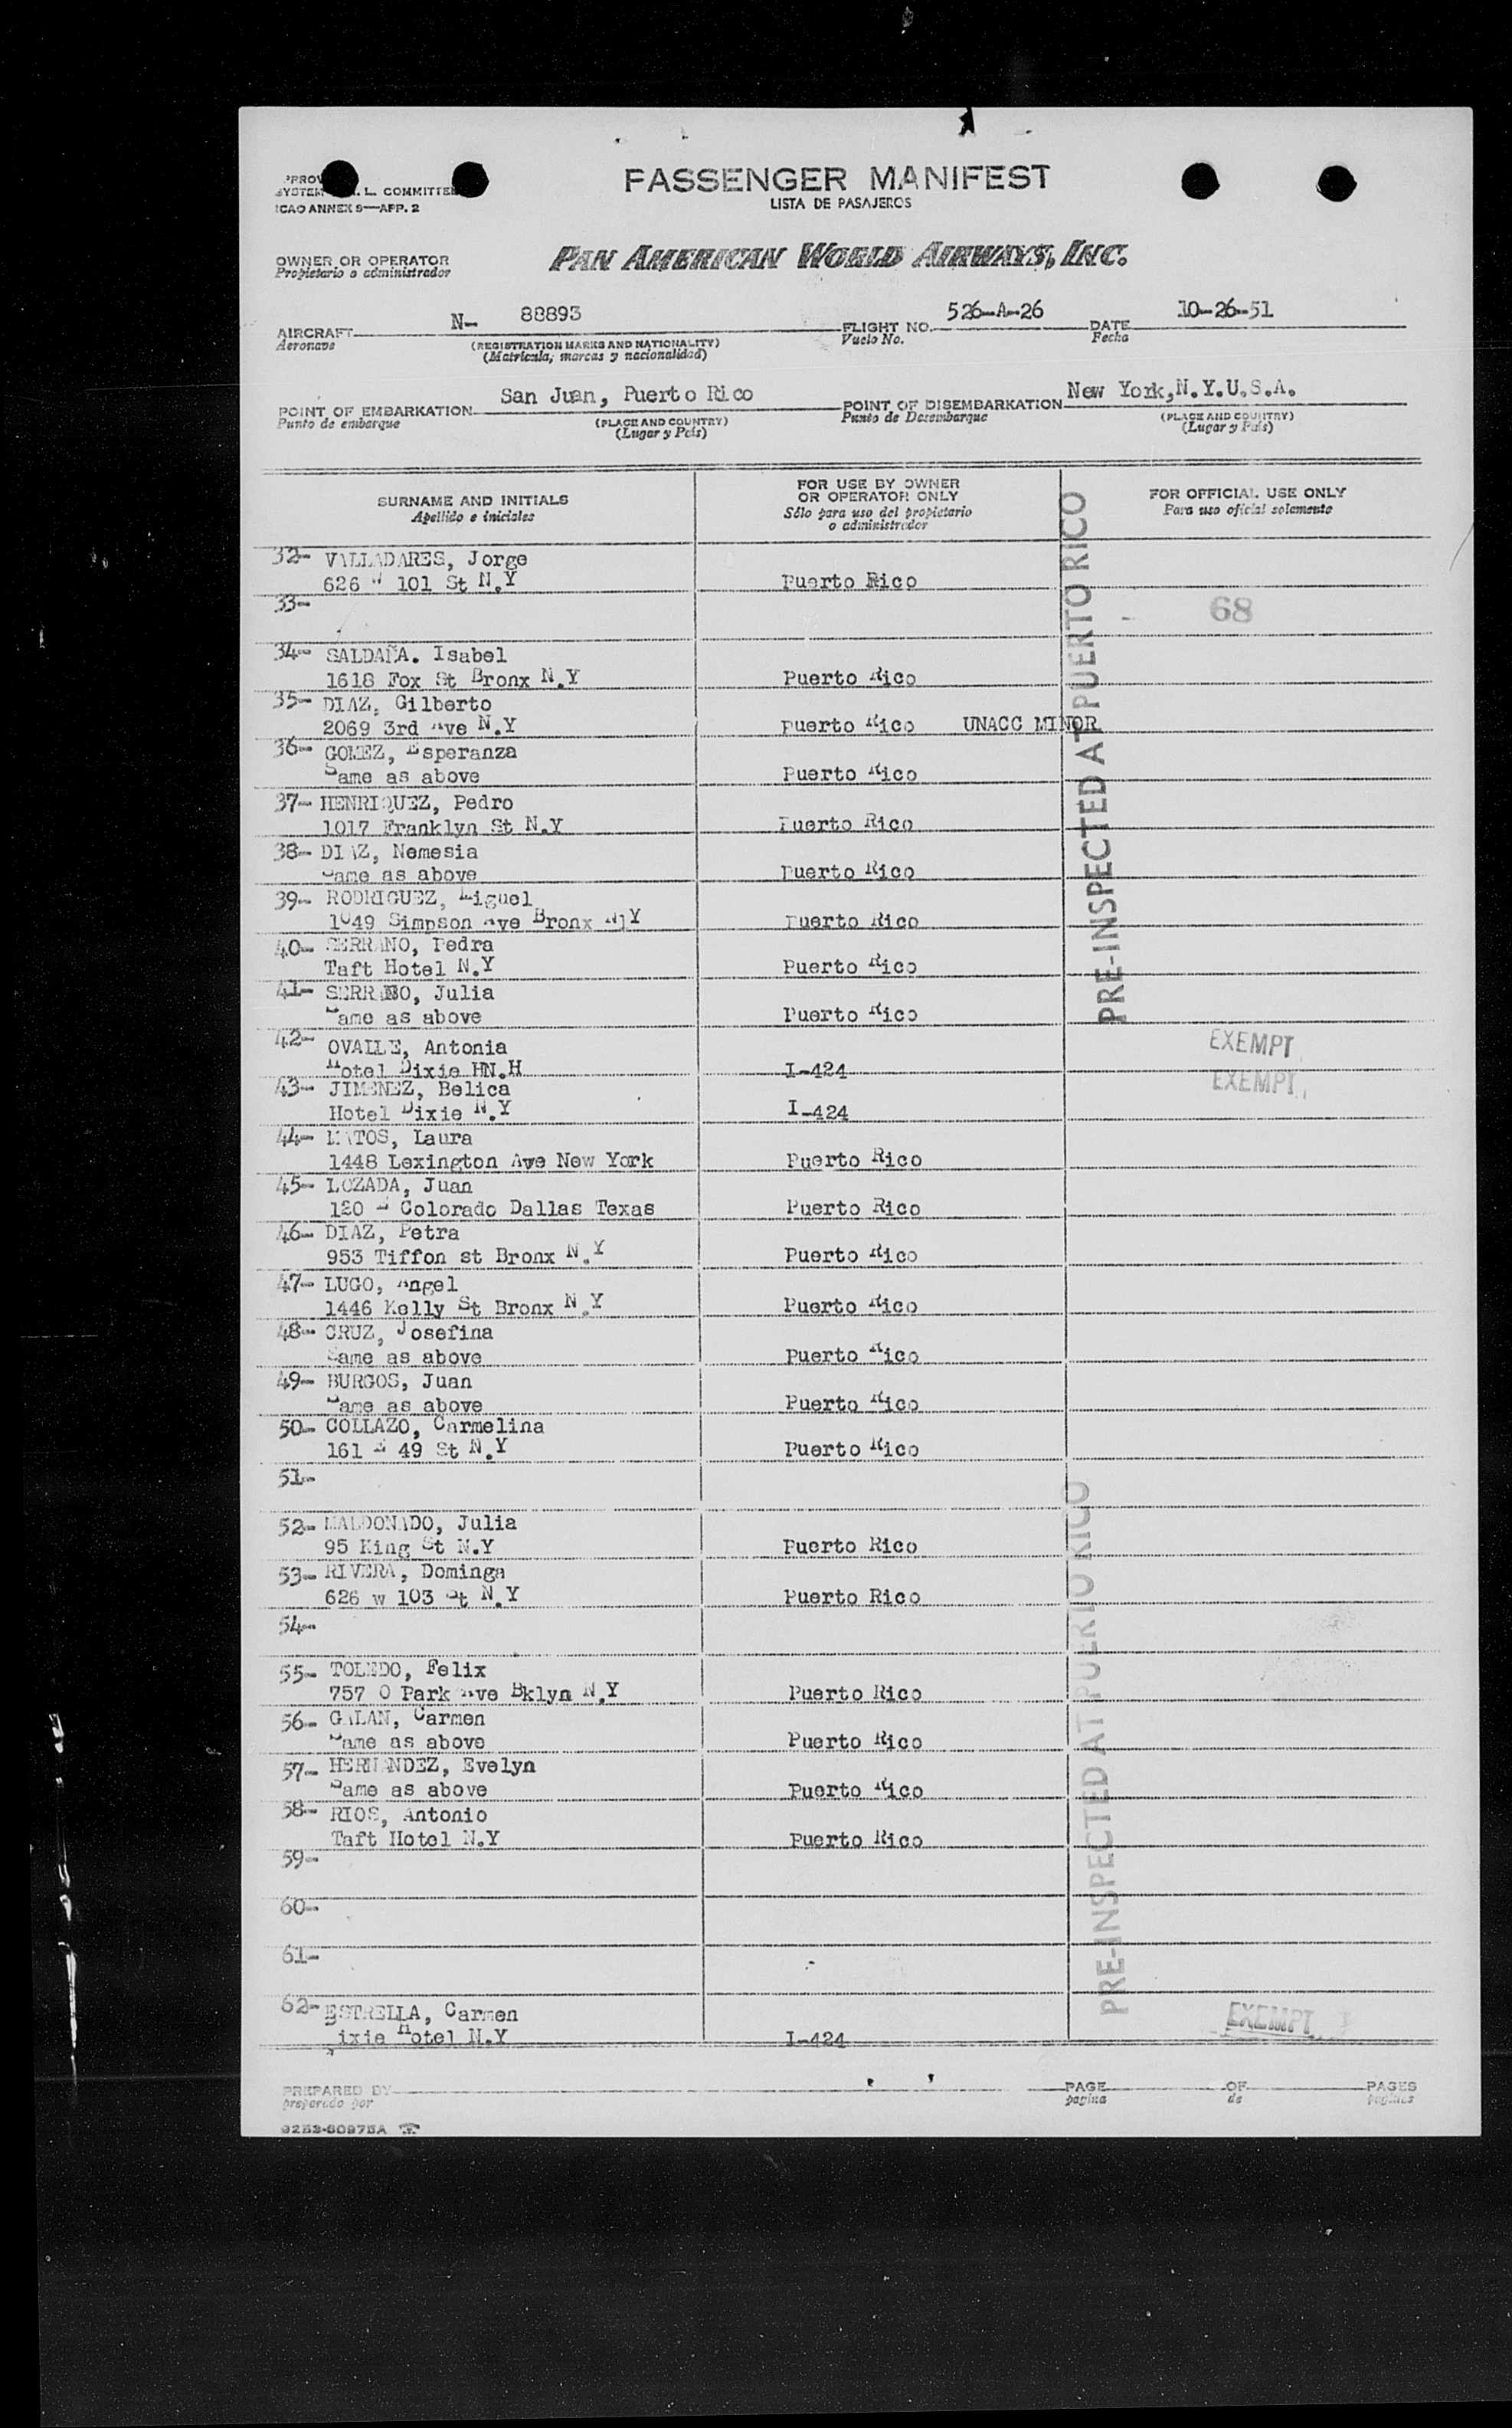 PASSENGER MANIFEST
LISTA DE PASAJEROS
L. COMMITTEE
ICAO ANNEX 9—APP. 2
OWNER OR OPERATOR
Propietario o administrador
PAN AMERICAN WORLD AIRWAYS, INC.
AIRCRAFT N- 88893 FLIGHT NO. 526-A-26 DATE 10-26-51
Aeronave (REGISTRATION MARKS AND NATIONALITY) Vuelo No. Fecha
(Matrícula, marcas y nacionalidad)
POINT OF EMBARKATION San Juan, Puerto Rico POINT OF DISEMBARKATION New York,N.Y.U.S.A.
Punto de embarque (PLACE AND COUNTRY) Punto de Desembarque (PLACE AND COUNTRY)
(Lugar y País) (Lugar y País)
SURNAME AND INITIALS
Apellido e iniciales
FOR USE BY OWNER
OR OPERATOR ONLY
Sólo para uso del propietario
o administrador
FOR OFFICIAL USE ONLY
Para uso oficial solamente
32- VALLADARES, Jorge
626 W 101 St N.Y Puerto Rico
33-
68
34- SALDAÑA. Isabel
1618 Fox St Bronx N.Y Puerto Rico
35- DIAZ, Gilberto
2069 3rd Ave N.Y Puerto Rico UNACC MINOR
36- GOMEZ, Esperanza
Same as above Puerto Rico
37- HENRIQUEZ, Pedro
1017 Franklyn St N.Y Puerto Rico
38- DIAZ, Nemesia
Same as above Puerto Rico
39- RODRIGUEZ, Miguel
1049 Simpson Ave Bronx N1Y Puerto Rico
40- SERRANO, Pedra
Taft Hotel N.Y Puerto Rico
41- SERRANO, Julia
Same as above Puerto Rico
PRE-INSPECTED AT PUERTO RICO
42- OVALLE, Antonia EXEMPT
Hotel Dixie HN.H I-424
43- JIMENEZ, Belica EXEMPT
Hotel Dixie N.Y I-424
44- MATOS, Laura
1448 Lexington Ave New York Puerto Rico
45- LOZADA, Juan
120 Colorado Dallas Texas Puerto Rico
46- DIAZ, Petra
953 Tiffon st Bronx N.Y Puerto Rico
47- LUGO, Angel
1446 Kelly St Bronx N.Y Puerto Rico
48- CRUZ, Josefina
Same as above Puerto Rico
49- BURGOS, Juan
Same as above Puerto Rico
50- COLLAZO, Carmelina
161 49 St N.Y Puerto Rico
51-
52- MALDONADO, Julia
95 King St N.Y Puerto Rico
53- RIVERA, Dominga
626 w 103 St N.Y Puerto Rico
54-
55- TOLEDO, Felix
757 O Park Ave Bklyn N.Y Puerto Rico
56- GALAN, Carmen
Same as above Puerto Rico
57- HERNANDEZ, Evelyn
Same as above Puerto Rico
58- RIOS, Antonio
Taft Hotel N.Y Puerto Rico
59-
60-
61-
PRE-INSPECTED AT PUERTO RICO
62- ESTRELLA, Carmen EXEMPT
Dixie Hotel N.Y I-424
PREPARED BY PAGE OF PAGES
preparado por pagina de paginas